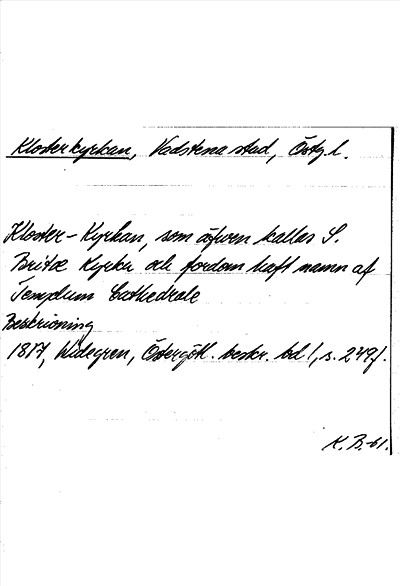 Klosterkyrkan, Vadstena stad, Östg. l.
Kloster-Kyrkan, som äfwen kallas S.
Britæ Kyrka och fordom haft namn af
Templum Cathedrale
Beskrivning
1817, Widegren, Östergötl. beskr. bd 1, s. 249f.
K. B. -61.